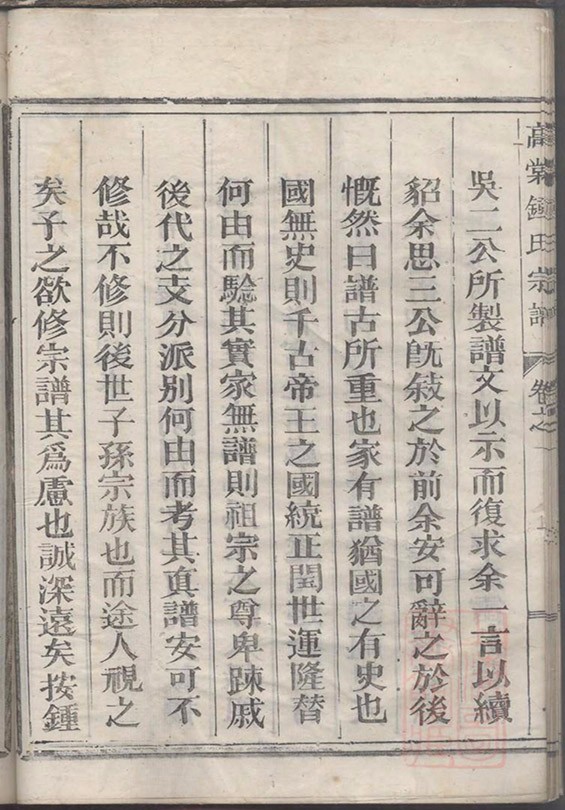 高棠鍾氏宗譜 卷之一
吳二公所製譜文以示而復求余一言以續
貂余思三公旣敍之於前余安可辭之於後
慨然曰譜古所重也家有譜猶國之有史也
國無史則千古帝王之國統正閏世運隆替
何由而驗其實家無譜則祖宗之尊卑踈戚
後代之支分派別何由而考其真譜安可不
修哉不修則後世子孫宗族也而途人視之
矣子之欲修宗譜其爲慮也誠深遠矣按鍾